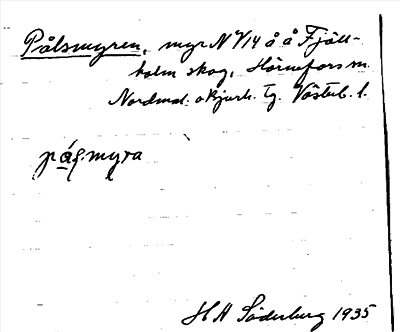 Pålsmyren, myr N V14 å å Fjäll-
holm skog, Hörnefors sn.
Nordmal. o Bjurh. tg. Västerb. l.
pálsmyra
H A Söderberg 1935